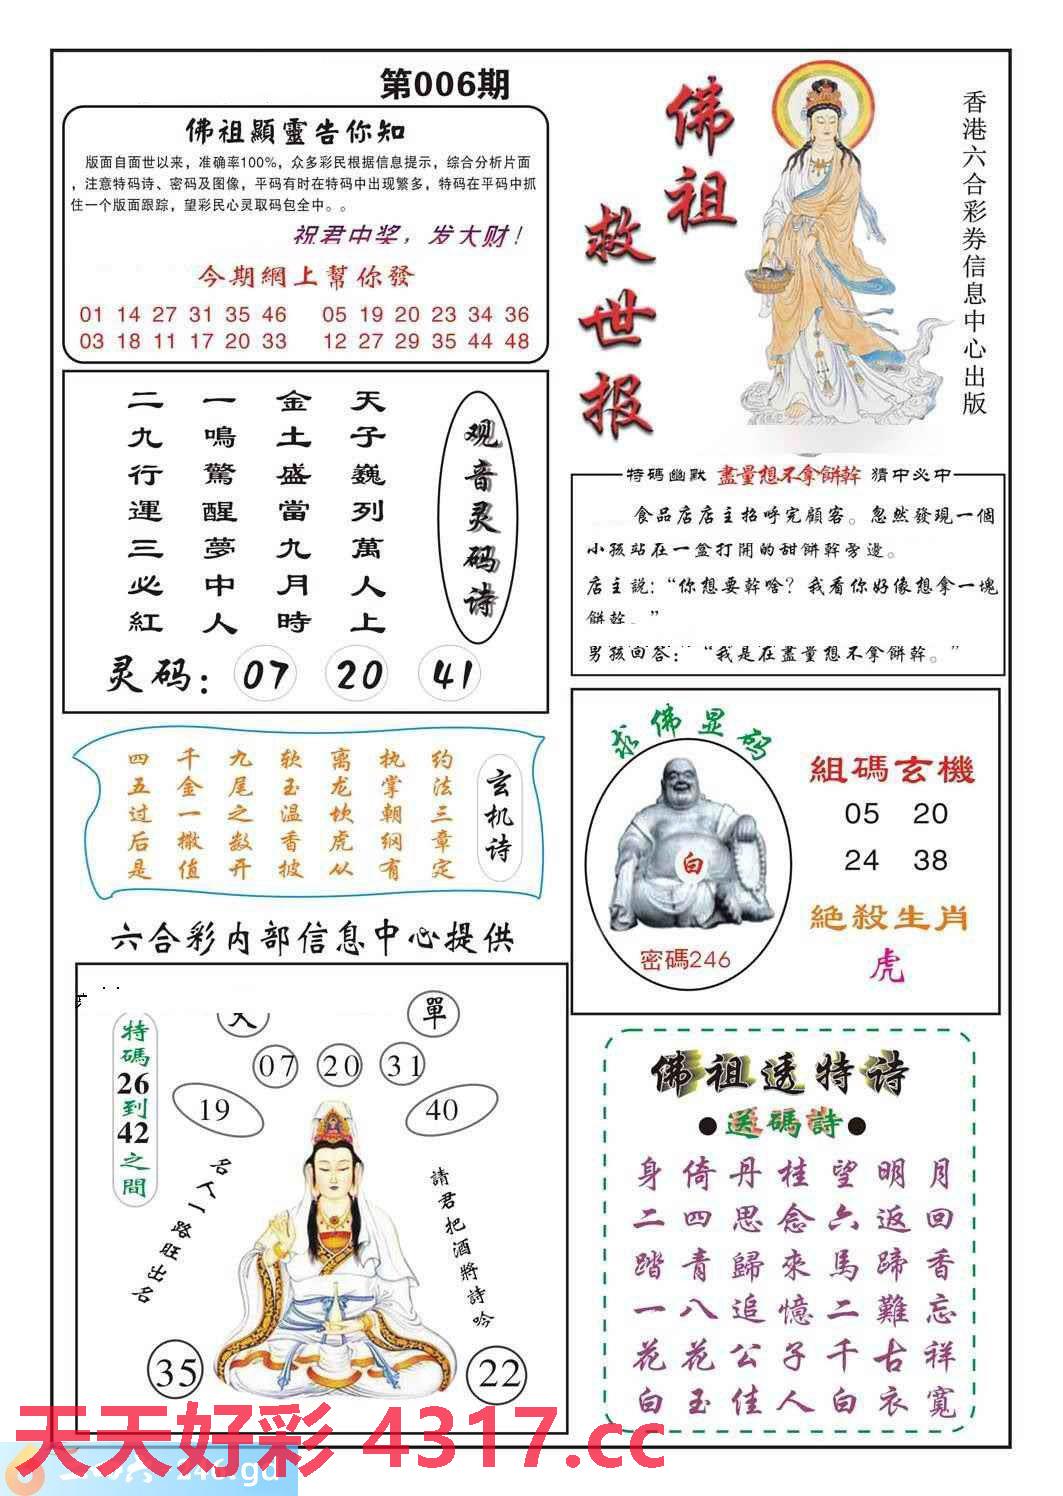 第006期
佛祖顯靈告你知
版面自面世以来，准确率100%，众多彩民根据信息提示，综合分析片面
，注意特码诗、密码及图像，平码有时在特码中出现繁多，特码在平码中抓
住一个版面跟踪，望彩民心灵取码包全中。。
祝君中奖，发大财！
今期網上幫你發
01 14 27 31 35 46 05 19 20 23 34 36
03 18 11 17 20 33 12 27 29 35 44 48
佛祖
救世报
香港六合彩券信息中心出版
观音灵码诗
天子巍列萬人上
金土盛當九月時
一鳴驚醒夢中人
二九行運三必紅
灵码：07 20 41
特碼幽默 盡量想不拿餅幹 猜中必中
食品店店主招呼完顧客。忽然發現一個
小孩站在一盆打開的甜餅幹旁邊。
店主説：“你想要幹啥？我看你好像想拿一塊
餅幹。”
男孩回答：“我是在盡量想不拿餅幹。”
玄机诗
约法三章定
执掌朝纲有
离龙坎虎从
软玉温香披
九尾之数开
千金一撒值
四五过后是
求佛显码
白
密碼246
組碼玄機
05 20
24 38
絕殺生肖
虎
六合彩内部信息中心提供
單
特碼26到42之間
07 20 31
19 40
名人一路旺出名
請君把酒將詩吟
35 22
佛祖透特诗
●送碼詩●
月回香忘祥寬
明返蹄難古衣
望六馬二千白
桂念來憶子人
丹思歸追公佳
倚四青八花玉
身二踏一花白
天天好彩 4317.cc